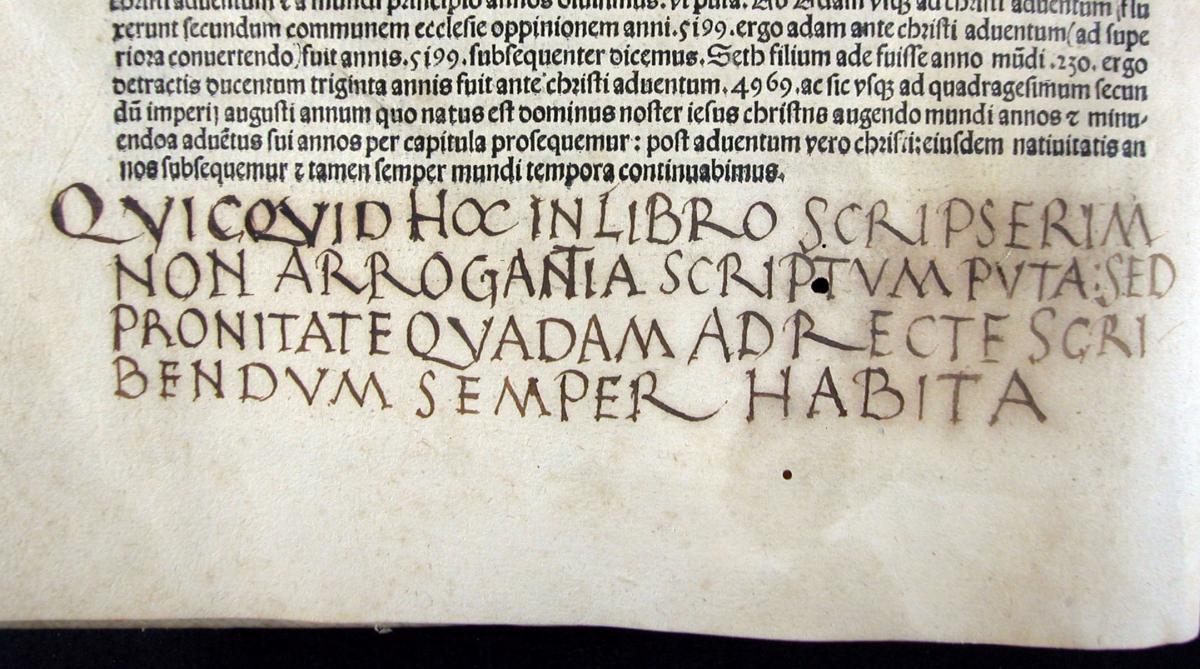 christi aduentum ⁊ a mundi principio annos diuidimus. vt puta. Ab Adam vsqꝫ ad christi aduentum flu
xerunt secundum communem ecclesie oppinionem anni.5199.ergo adam ante christi aduentum(ad supe
riora conuertendo)fuit annis.5199.subsequenter dicemus.Seth filium ade fuisse anno mūdi .230. ergo
detractis ducentum triginta annis fuit ante christi aduentum.4969.ac sic vsqꝫ ad quadragesimum secun
dū imperij augusti annum quo natus est dominus noster iesus christus augendo mundi annos ⁊ minu-
endoa aduētus sui annos per capitula prosequemur: post aduentum vero christi:eiusdem natiuitatis an
nos subsequemur ⁊ tamen semper mundi tempora continuabimus.
QVICQVID HOC IN LIBRO SCRIPSERIM
NON ARROGANTIA SCRIPTVM PVTA: SED
PRONITATE QVADAM AD RECTE SCRI
BENDVM SEMPER HABITA